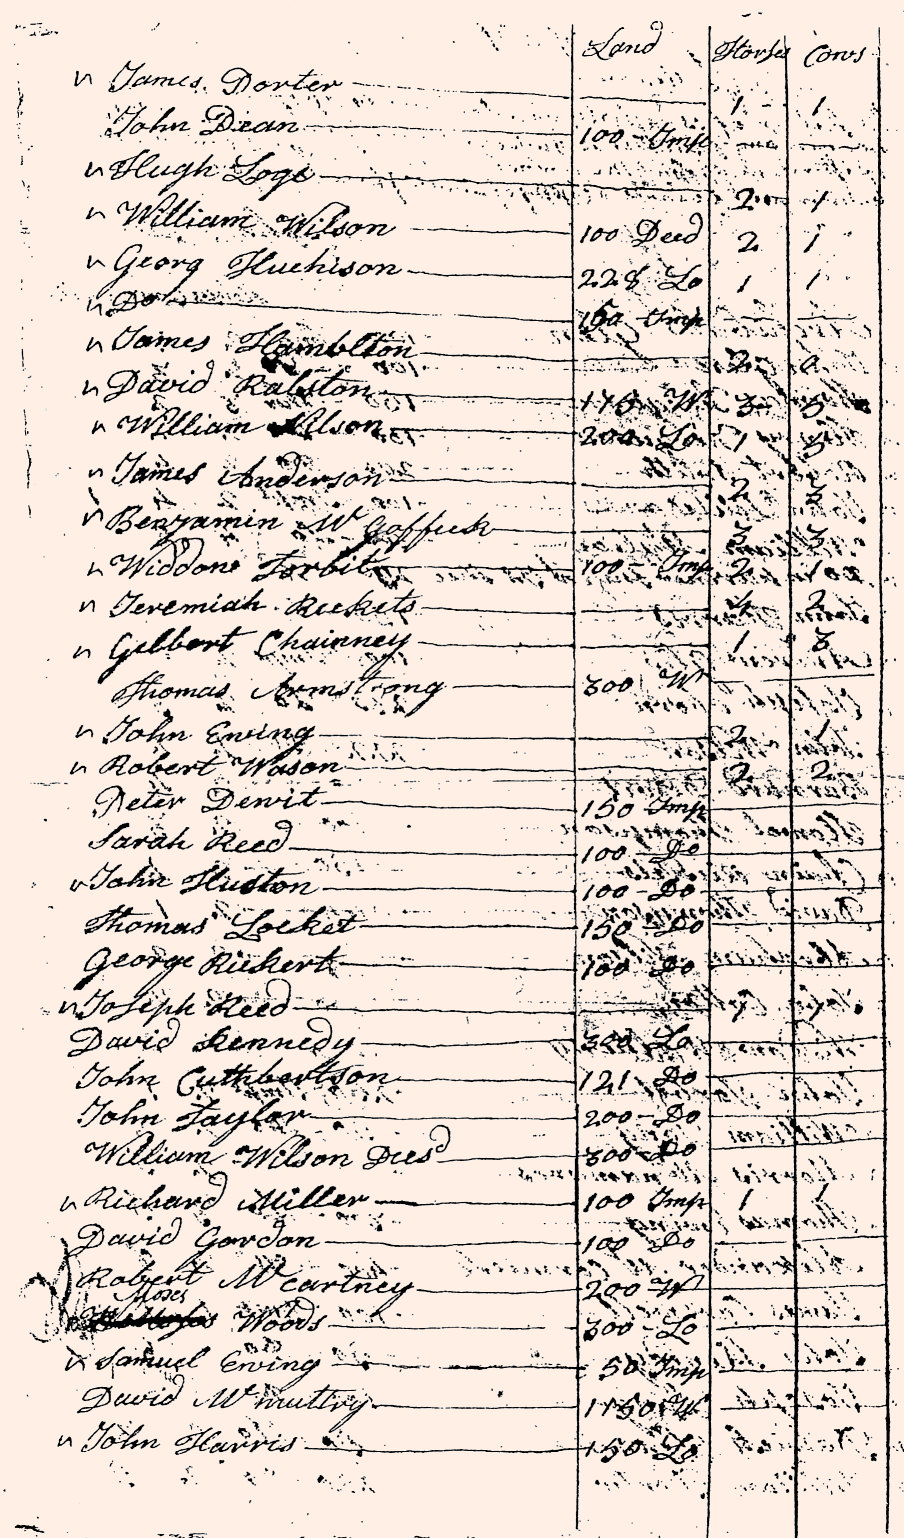 Land Horses Cows
James Porter 1 1
John Dean 100 Imp
Hugh Loge 2 1
William Wilson 100 Deed 2 1
Georg Huchison 228 Lo 1 1
Do 150 Imp
James Hamblton 2 0
David Ralston 175 W 3 5
William Nilson 200 Lo 1 5
James Anderson 2 3
Benjamin Mc 3 3
Widdow Forbit 100 Imp 2 1
Jeremiah Rickets 4 2
Gilbert Chainney 1 3
Thomas Armstrong 300 Wt
John Ewing 2 1
Robert Wason 2 2
Peter Dewit 150 Imp
Sarah Reed 100 Do
John Huston 100 Do
Thomas Locket 150 Do
George Rickert 100 Do
Joseph Reed 1 1
David Kennedy 300 Lo
John Cuthbertson 121 Do
John Taylor 200 Do
William Wilson Dies'd 300 Do
Richard Miller 100 Imp 1 1
David Gordon 100 Do
Robert Mc Cartney 200 Wt
Moses
Woods 300 Lo
Samuel Ewing 50 Imp
David Mc multry 1150 W
John Harris 150 Lo